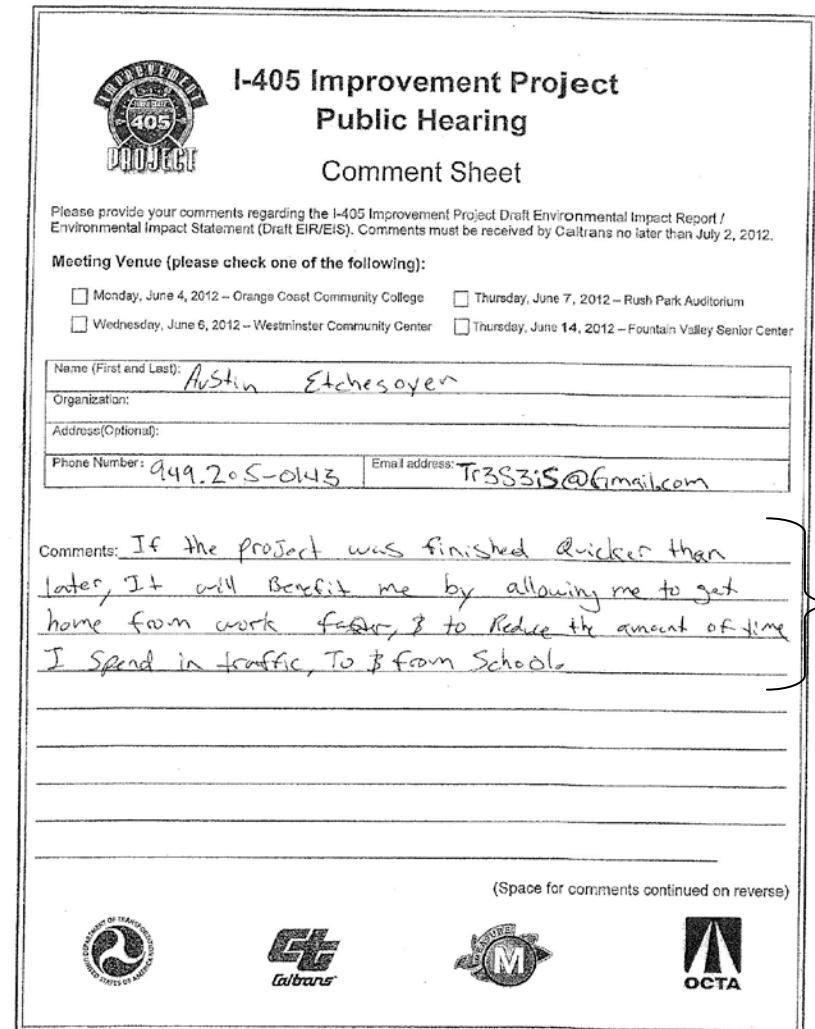 IMPROVEMENT
405
PROJECT
I-405 Improvement Project
Public Hearing
Comment Sheet
Please provide your comments regarding the I-405 Improvement Project Draft Environmental Impact Report /
Environmental Impact Statement (Draft EIR/EIS). Comments must be received by Caltrans no later than July 2, 2012.
Meeting Venue (please check one of the following):
Monday, June 4, 2012 – Orange Coast Community College
Thursday, June 7, 2012 – Rush Park Auditorium
Wednesday, June 6, 2012 – Westminster Community Center
Thursday, June 14, 2012 – Fountain Valley Senior Center
Name (First and Last): Austin Etchegoyen
Organization:
Address(Optional):
Phone Number: 949.205-0143
Email address: Tr3S3iS@Gmail.com
Comments: If the project was finished Quicker than
later, It will Benefit me by allowing me to get
home from work faster, & to Reduce the amount of time
I Spend in traffic, To & from School.
(Space for comments continued on reverse)
DEPARTMENT OF TRANSPORTATION
UNITED STATES OF AMERICA
Caltrans
MEASURE
M
OCTA